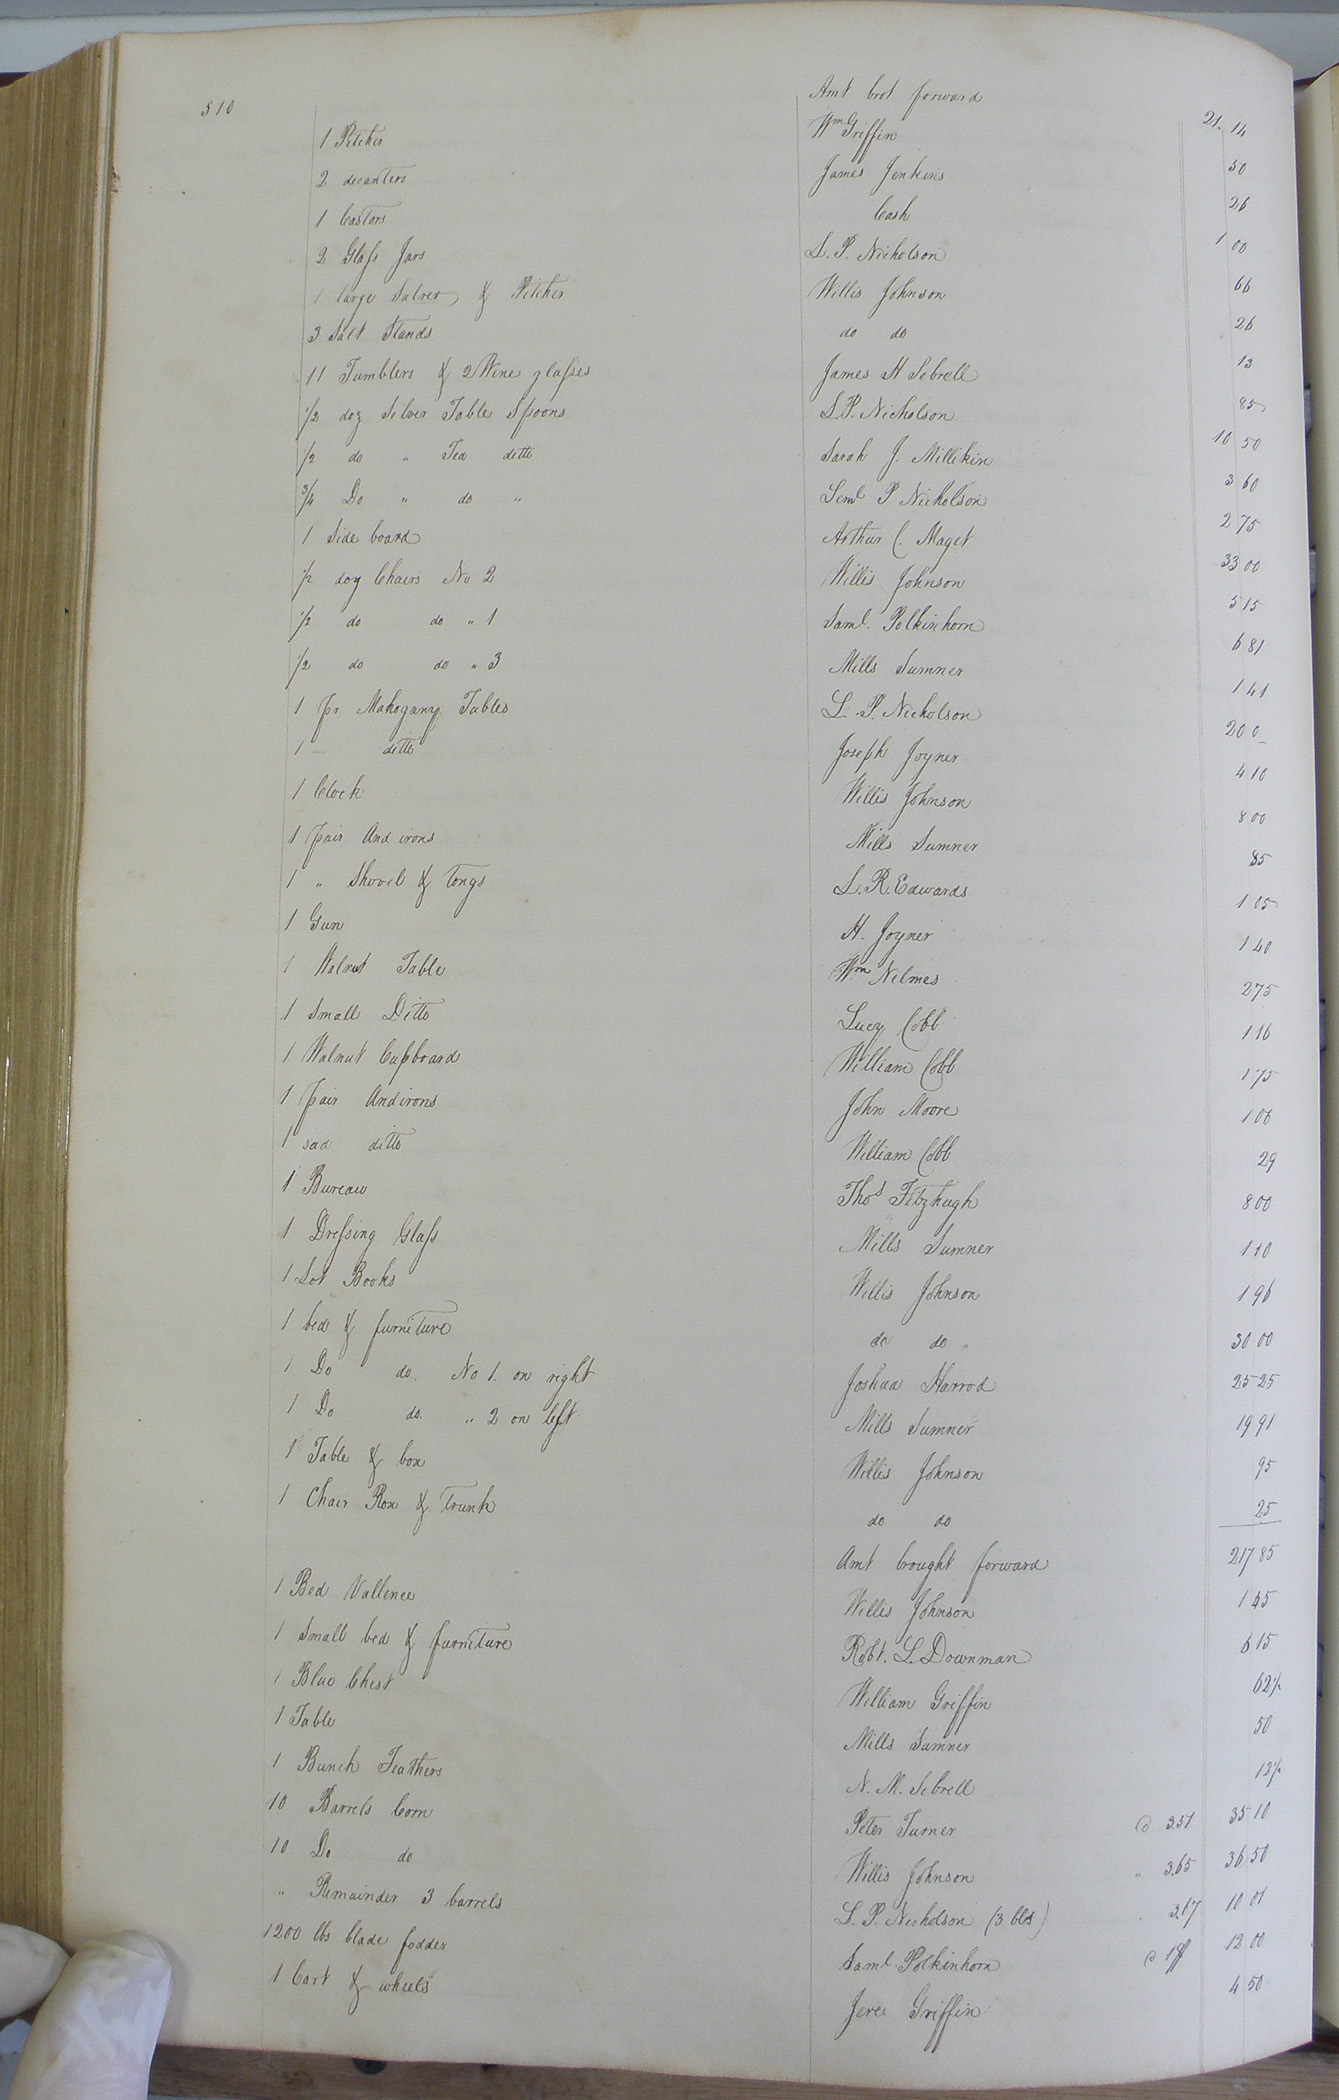 510
Amt brot forward 21. 14
1 Pitcher Wm Griffin 50
2 decanters James Jenkins 26
1 Castors Cash 1 00
2 Glass Jars L. P. Nicholson 66
1 large Salver & Pitcher Willis Johnson 26
3 Salt Stands do do 13
11 Tumblers & 2 Wine glasses James H Sebrell 85
1/2 doz Silver Table Spoons L. P. Nicholson 10 50
1/2 do " Tea ditto Sarah J. Millikin 3 60
3/4 Do " do " Leml P Nicholson 2 75
1 Side board Arthur C. Maget 33 00
1/2 doz Chairs No 2 Willis Johnson 5 15
1/2 do do " 1 Saml. Polkinhorn 6 81
1/2 do do " 3 Mills Sumner 1 41
1 pr Mahogany Tables L. P. Nicholson 20 0_
1 — ditto Joseph Joyner 4 10
1 Clock Willis Johnson 8 00
1 pair And irons Mills Sumner 85
1 " Shovel & Tongs L. R. Edwards 1 05
1 Gun H. Joyner 1 40
1 Walnut Table Wm Nelmes 2 75
1 Small Ditto Lucy Cobb 1 16
1 Walnut Cupboard William Cobb 1 75
1 pair Andirons John Moore 1 06
1 sad ditto William Cobb 29
1 Bureau Thos Fitzhugh 8 00
1 Dressing Glass Mills Sumner 1 10
1 Lot Books Willis Johnson 1 96
1 bed & furniture do do 30 00
1 Do do. No 1. on right Joshua Harrod 25 25
1 Do do. " 2 on left Mills Sumner 19 91
1 Table & box Willis Johnson 95
1 Chair Box & Trunk do do 25
Amt brought forward 217 85
1 Bed Vallence Willis Johnson 1 45
1 Small bed & furniture Robt. L. Downman 6 15
1 Blue Chest William Griffin 62½
1 Table Mills Sumner 50
1 Bunch Feathers N. M. Sebrell 12½
10 Barrels Corn Peter Turner @ 3.51 35 10
10 Do do Willis Johnson " 3.65 36 50
" Remainder 3 barrels L. P. Nicholson (3 bbs) 3.67 10 01
1200 lbs blade fodder Saml. Polkinhorn @ 12 00
1 Cart & wheels Jere Griffin 4 50